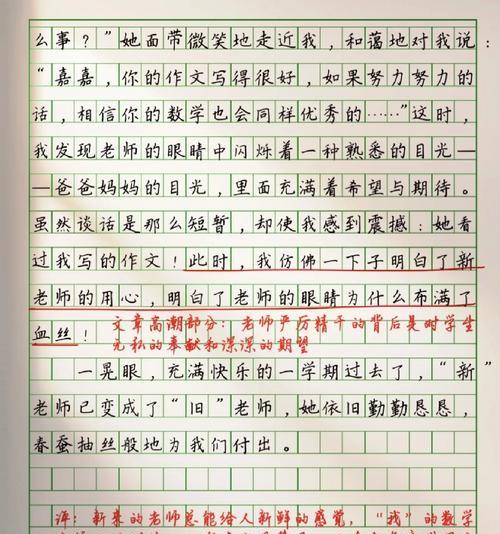 么事？”她面带微笑地走近我，和蔼地对我说：
“嘉嘉，你的作文写得很好，如果努力努力的
话，相信你的数学也会同样优秀的……”这时，
我发现老师的眼睛中闪烁着一种熟悉的目光—
—爸爸妈妈的目光，里面充满着希望与期待。
虽然谈话是那么短暂，却使我感到震撼：她看
过我写的作文！此时，我仿佛一下子明白了新
老师的用心，明白了老师的眼睛为什么布满了
血丝！
文章高潮部分：老师严厉精干的背后是对学生
无私的奉献和深深的期望
一晃眼，充满快乐的一学期过去了，“新”
老师已变成了“旧”老师，她依旧勤勤恳恳，
春蚕抽丝般地为我们付出。
评：新来的老师总能给人新鲜的感觉，“我”的数学